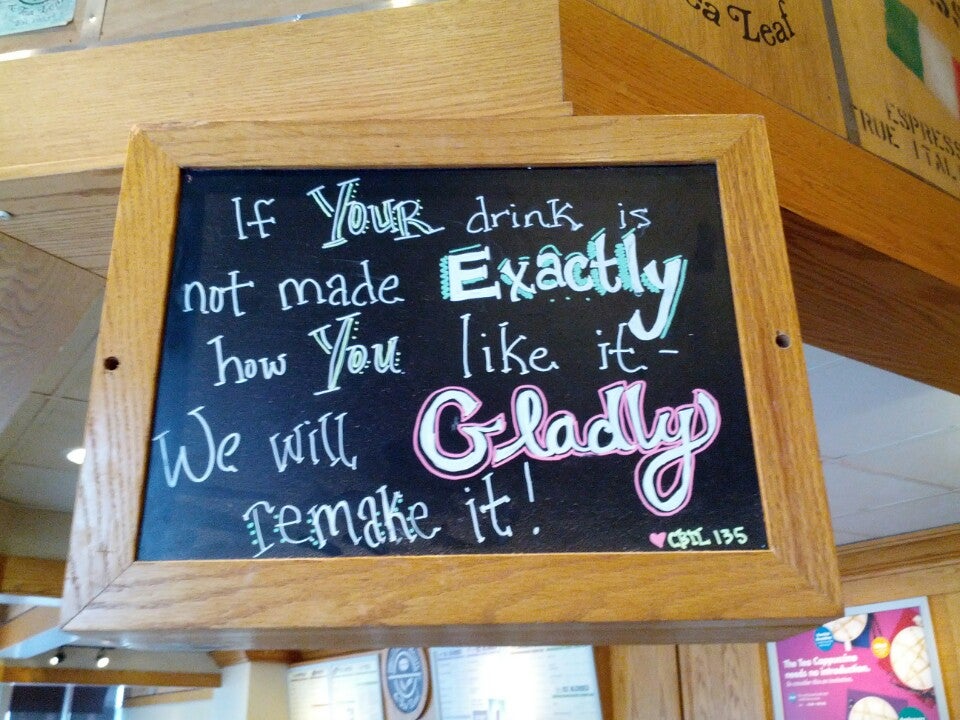 ea Leaf
ESPRESS
TRUE ITAL
If YOUR drink is
not made Exactly
how You like it -
We will Gladly
remake it!
CBTL 135
The Tea Cappuccino
needs no introduction.